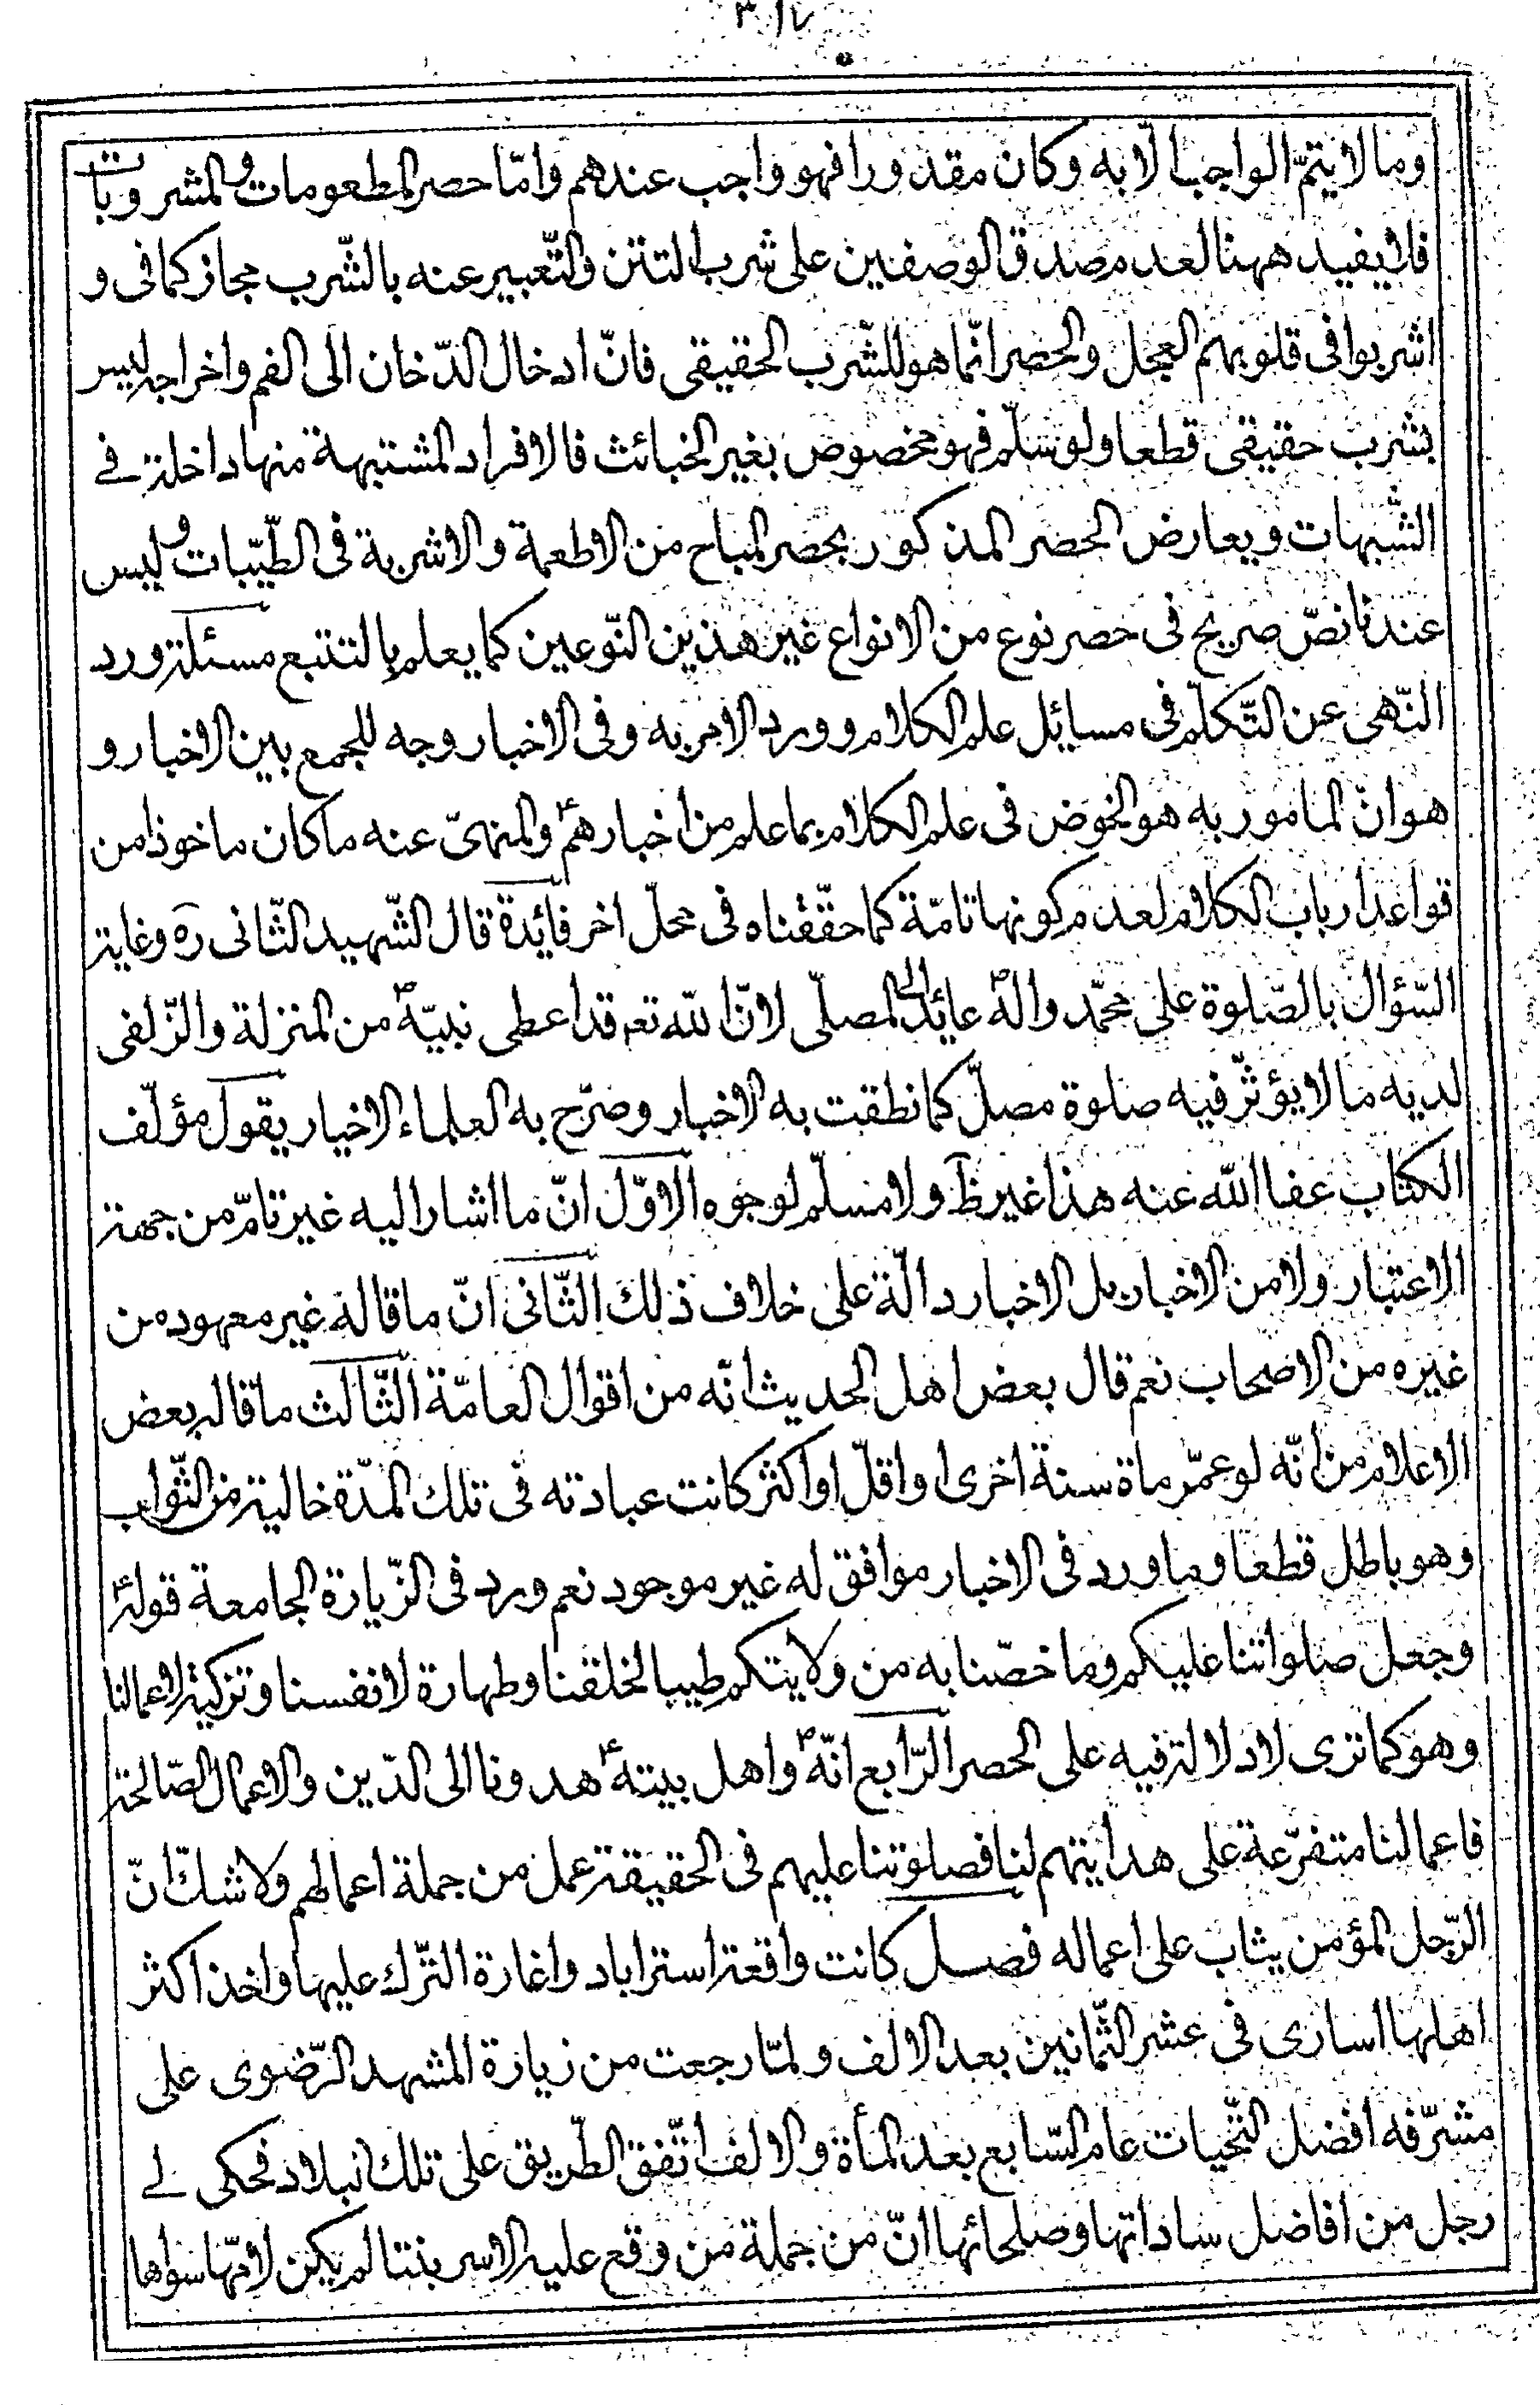 ٣١٧
وما لا يتمّ الواجب الّا به وكان مقدورا فهو واجب عندهم وامّا حصر المطعومات والمشروبات
فلا يفيد ههنا لعدم صدق الوصفين على شرب التتن والتّعبير عنه بالشّرب مجاز كما فى و
اشربوا فى قلوبهم العجل والحصر انّما هو للشّرب الحقيقى فانّ ادخال الدّخان الى الفم واخراجه ليس
بشرب حقيقى قطعا ولو سلّم فهو مخصوص بغير الخبائث فالافراد المشتبهة منها داخلة فى
الشّبهات ويعارض الحصر المذكور بحصر المباح من الاطعمة والاشربة فى الطّيّبات وليس
عندنا نصّ صريح فى حصر نوع من الانواع غير هذين النّوعين كما يعلم بالتتبع مسئلة ورد
النّهى عن التّكلّم فى مسايل علم الكلام وورد الامر به وفى الاخبار وجه للجمع بين الاخبار و
هو انّ المامور به هو الخوض فى علم الكلام بما علم من اخبارهمؑ والمنهىّ عنه ما كان ماخوذا من
قواعد ارباب الكلام لعدم كونها تامّة كما حقّقناه فى محلّ اخر فائدة قال الشّهيد الثّانى ره وغاية
السّؤال بالصّلوة على محمّد والهؐ عائد الى المصلّى لانّ اللّه تعہ قد اعطى نبيّهؐ من المنزلة والزّلفى
لديه ما لا يؤثّر فيه صلوة مصلّ كما نطقت به الاخبار وصرّح به العلماء الاخيار يقول مؤلّف
الكتاب عفا اللّه عنه هذا غير ظَ ولا مسلّم لوجوه الاوّل انّ ما اشار اليه غير تامّ من جهة
الاعتبار ولا من الاخبار بل الاخبار دالّة على خلاف ذلك الثّانى انّ ما قاله غير معهود من
غيره من الاصحاب نعم قال بعض اهل الحديث انّه من اقوال العامّة الثّالث ما قاله بعض
الاعلام من انّه لو عمّر ماة سنة اخرى او اقلّ او اكثر كانت عبادته فى تلك المدّة خالية من الثّواب
وهو باطل قطعا وما ورد فى الاخبار موافق له غير موجود نعم ورد فى الزّيارة الجامعة قولهؑ
وجعل صلواتنا عليكم وما خصّنا به من ولايتكم طيبا لخلقنا وطهارة لانفسنا وتزكية لاعمالنا
وهو كما ترى لا دلالة فيه على الحصر الرّابع انّهؐ واهل بيتهؑ هدونا الى الدّين والاعمال الصّالحة
فاعمالنا متفرّعة على هدايتهم لنا فصلوتنا عليهم فى الحقيقة عمل من جملة اعمالهم ولا شكّ انّ
الرّجل المؤمن يثاب على اعماله فصل كانت واقعة استراباد واغارة التّرك عليها واخذ اكثر
اهلها اسارى فى عشر الثّمانين بعد الالف ولمّا رجعت من زيارة المشهد الرّضوى على
مشرّفه افضل التّحيات عام السّابع بعد المأة والالف اتّفق الطّريق على تلك البلاد فحكى لى
رجل من افاضل ساداتها وصلحائها انّ من جملة من وقع عليه الاسر بنتا لم يكن لامّها سواها